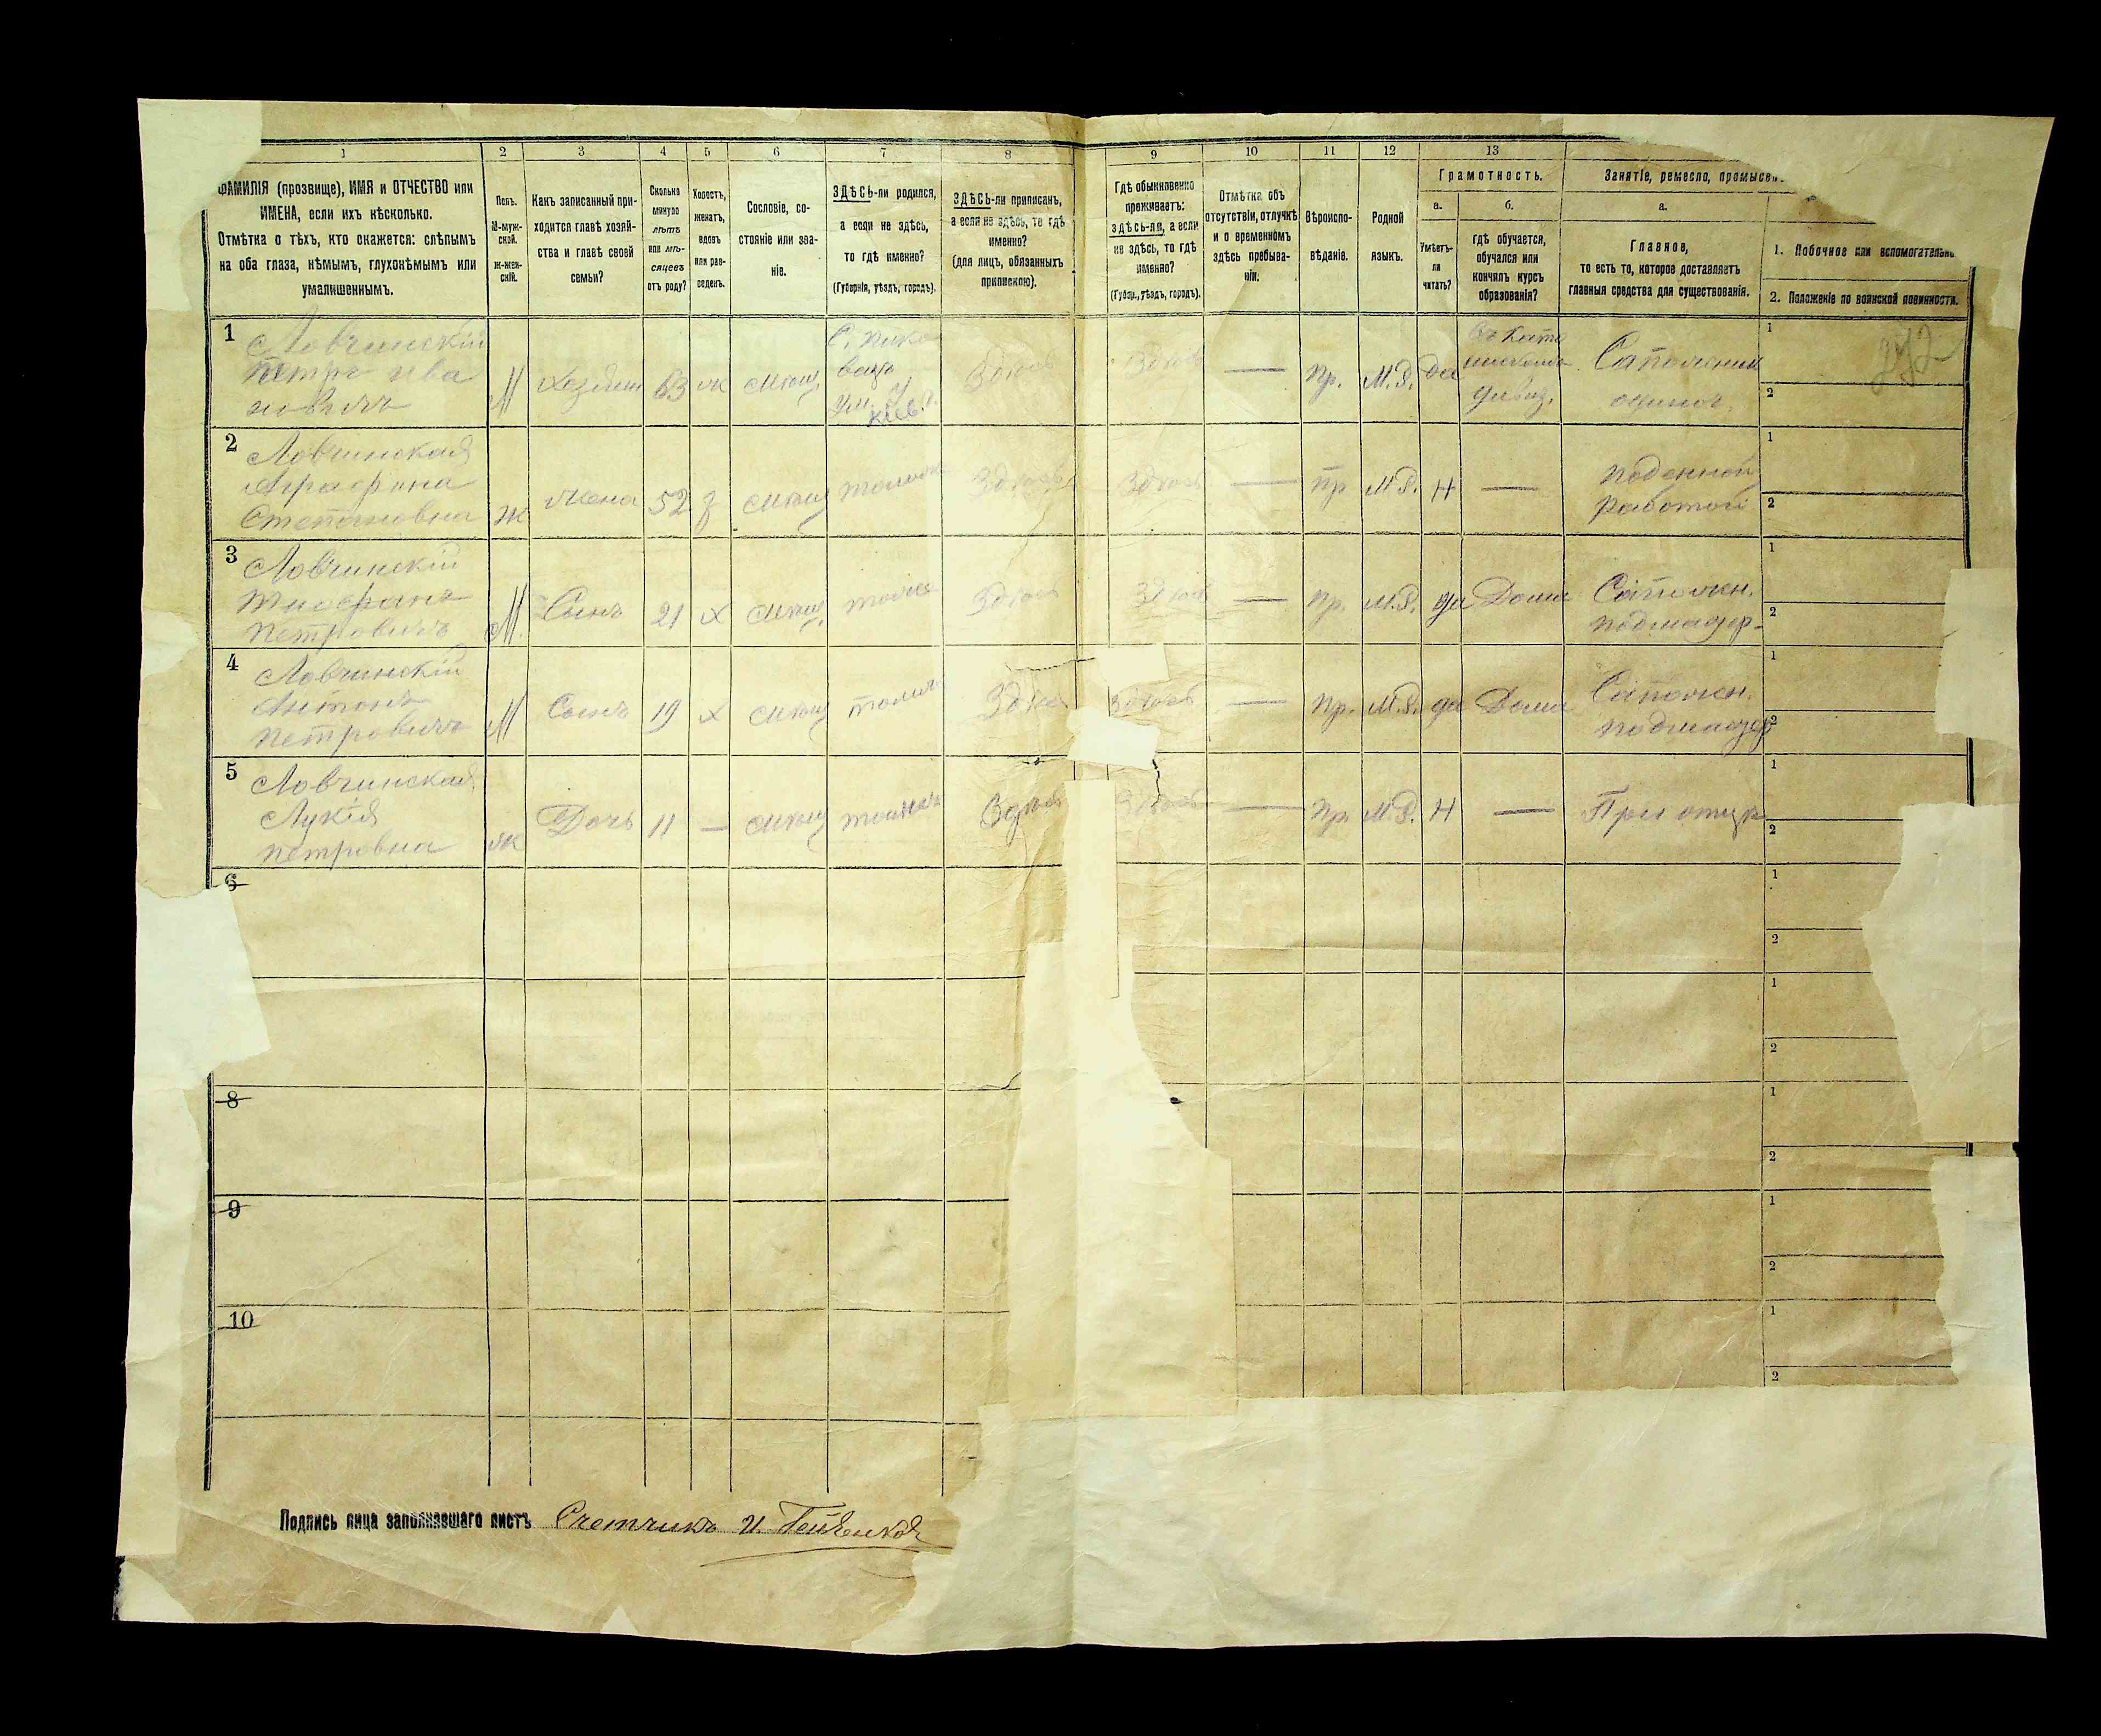 1 2 3 4 5 6 7 8 9 10 11 12 13
ФАМИЛІЯ (прозвище), ИМЯ и ОТЧЕСТВО или
ИМЕНА, если ихъ нѣсколько.
Отмѣтка о тѣхъ, кто окажется: слѣпымъ
на оба глаза, нѣмымъ, глухонѣмымъ или
умалишеннымъ.
Полъ.
М-муж-
ской.
Ж-жен-
скій.
Какъ записанный при-
ходится главѣ хозяй-
ства и главѣ своей
семьи?
Сколько
минуло
лѣтъ
или мѣ-
сяцевъ
отъ роду?
Холостъ,
женатъ,
вдовъ
или раз-
веденъ.
Сословіе, со-
стояніе или зва-
ніе.
ЗДѢСЬ-ли родился,
а если не здѣсь,
то гдѣ именно?
(Губернія, уѣздъ, городъ).
ЗДѢСЬ-ли приписанъ,
а если не здѣсь, то гдѣ
именно?
(для лицъ, обязанныхъ
припискою).
Гдѣ обыкновенно
проживаетъ:
здѣсь-ли, а если
не здѣсь, то гдѣ
именно?
(Губер., уѣздъ, городъ).
Отмѣтка объ
отсутствіи, отлучкѣ
и о временномъ
здѣсь пребыва-
ніи.
Вѣроиспо-
вѣданіе.
Родной
языкъ.
Грамотность.
а.
Умѣетъ-
ли
читать?
б.
гдѣ обучается,
обучался или
кончилъ курсъ
образованія?
Занятіе, ремесло, промысе
а.
Главное,
то есть то, которое доставляетъ
главныя средства для существованія.
1. Побочное или вспомогательно
2. Положеніе по воинской повинности.
272
1
Ловчинскій
Петръ Ива
новичъ
М Хозяин 63 ж мѣщ.
Ум. У
Кіев. г.
Здѣсь Здѣсь — Пр. М.Р. да
дивиз.
Сапожник
1
2
2
Ловчинская
Аграфина
Степановна
ж Жена 52 з мѣщ тоже Здѣсь Здѣсь — пр М.Р. Н —
Поденной
работой
1
2
3
Ловчинскій
Петровичъ
М. Сынъ 21 х мѣщ. тоже Здѣсь Здѣсь — Пр. М.Р. да Дома
Сапожн.
подмастер-
1
2
4
Ловчинскій
Антонъ
Петровичъ
М Сынъ 19 х мѣщ Здѣсь Здѣсь — Пр. М.Р. да Дома
Сапожн.
подмастер
1
2
5
Ловчинская
Лукія
Петровна
ж Дочь 11 — мѣщ Здѣсь Здѣсь — Пр. М.Р. Н — При отцѣ
1
2
6
1
2
1
2
8
1
2
9
1
2
10
1
2
Подпись лица заполнявшаго листъ Счетчикъ И.